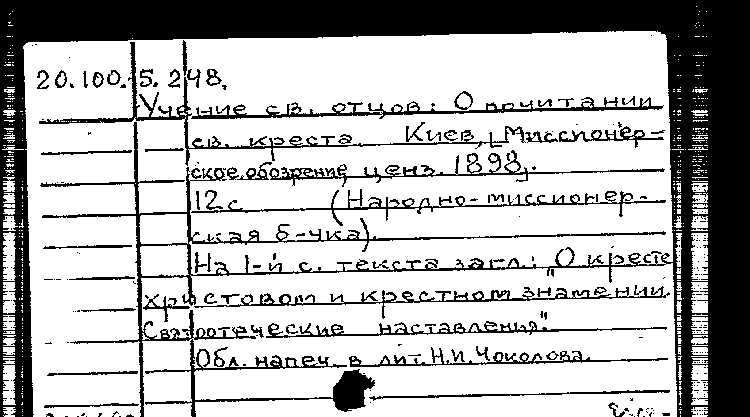 20.100.-5.248.
Учение св. отцов: О почитании
св. креста. Киев, [Миссионер-
ское обозрение, ценз. 1898].
12с (Народно-миссионер-
ская б-чка).
На 1-й с. текста загл.: "О кресте
христовом и крестном знамении.
Святоотеческие наставления".
Обл. напеч. в лит. Н.И. Чоколова.